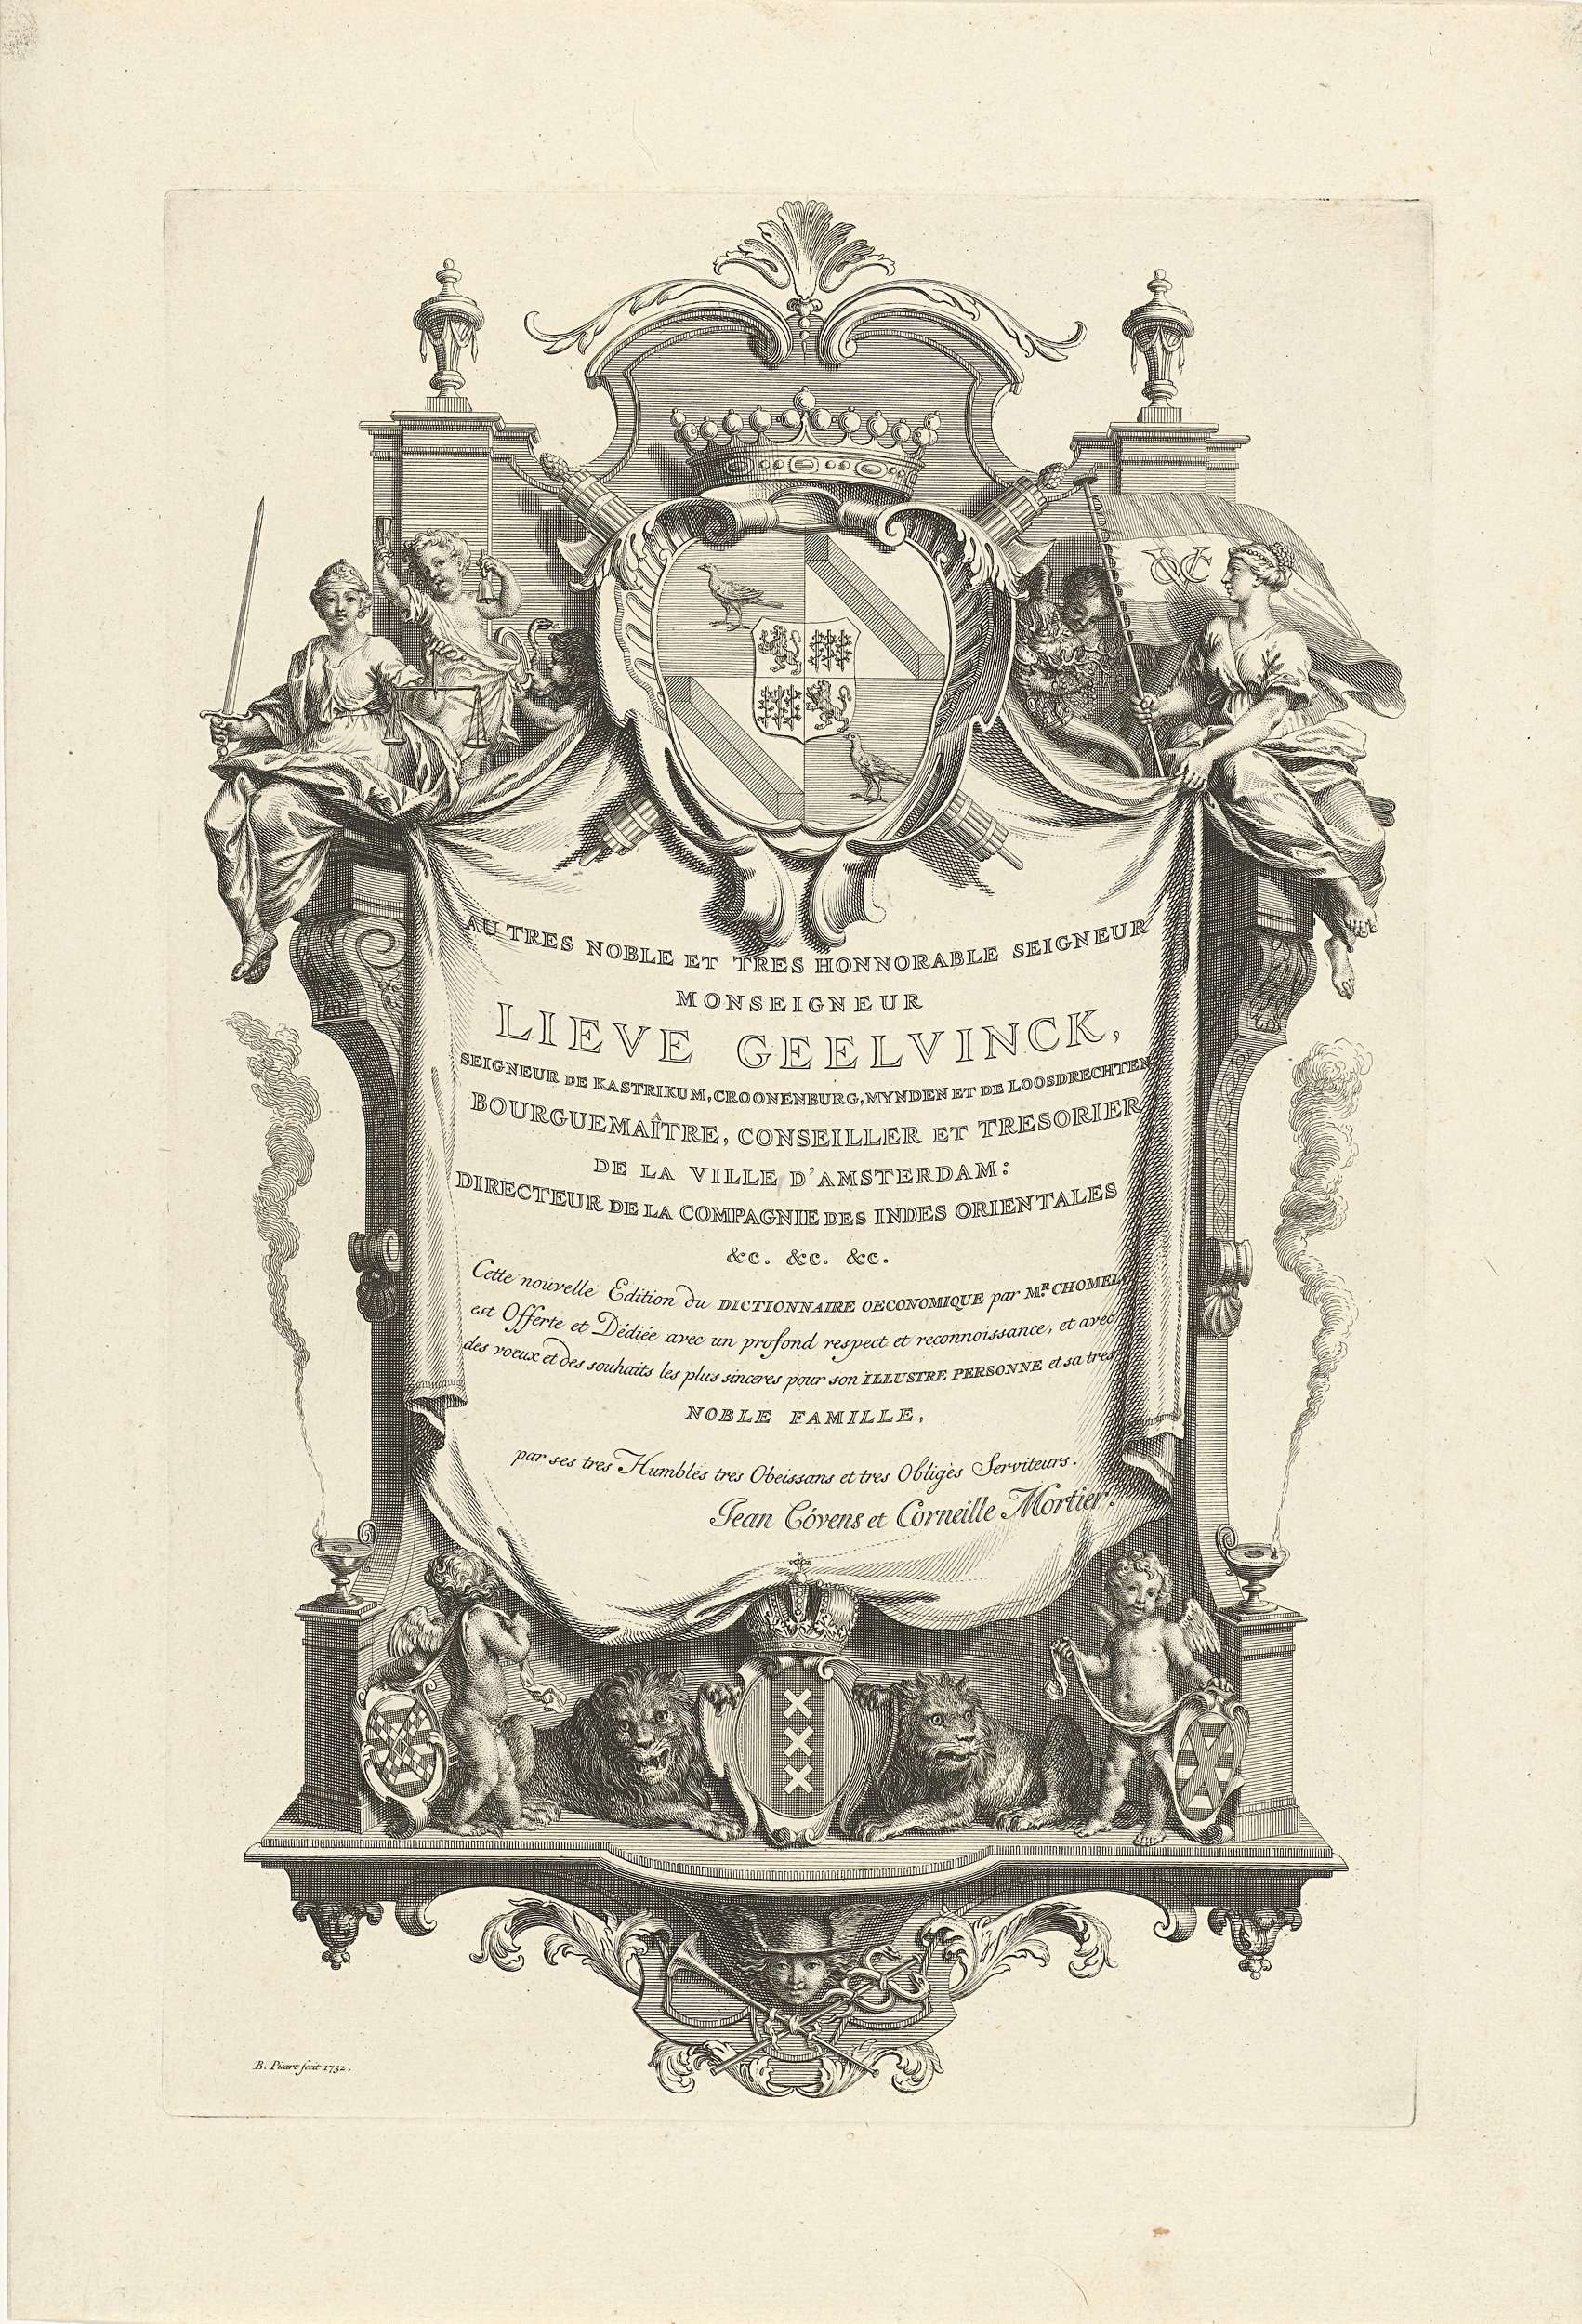 VOC
AU TRES NOBLE ET TRES HONNORABLE SEIGNEUR
MONSEIGNEUR
LIEVE GEELVINCK,
SEIGNEUR DE KASTRIKUM, CROONENBURG, MYNDEN ET DE LOOSDRECHTEN
BOURGUEMAÎTRE, CONSEILLER ET TRESORIER
DE LA VILLE D'AMSTERDAM:
DIRECTEUR DE LA COMPAGNIE DES INDES ORIENTALES
&c. &c. &c.
Cette nouvelle Edition du DICTIONNAIRE OECONOMIQUE par Mr. CHOMEL
est Offerte et Dédiée avec un profond respect et reconnoissance, et avec
des voeux et des souhaits les plus sinceres pour son ILLUSTRE PERSONNE et sa tres
NOBLE FAMILLE,
par ses tres Humbles tres Obeissans et tres Obligés Serviteurs.
Jean Cóvens et Corneille Mortier.
B. Picart fecit 1732.